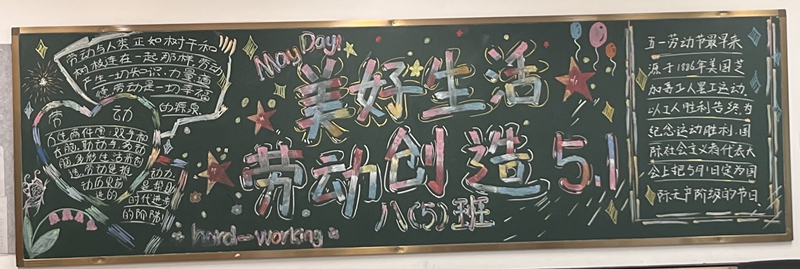 劳动与人类正如树干和
树根连在一起那样劳动
产生一切知识力量道
德劳动是一切幸福
的源泉
劳动
劳动力
是帮助
时代进步
的阶梯
May Day!
美好生活
劳动创造 5.1
八(5)班
hard-working
五一劳动节最早来
源于1886年美国芝
加哥工人罢工运动,
以工人胜利告终,为
纪念运动胜利,国
际社会主义者代表大
会上把5月1日定为国
际无产阶级的节日